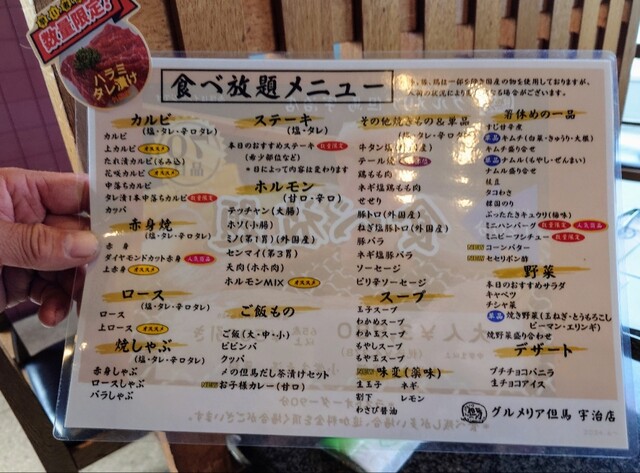 数量限定!
ハラミ
タレ漬け
食べ放題メニュー
カルビ
(塩・タレ・辛口タレ)
カルビ
上カルビ オススメ
たれ漬カルビ(もみ込)
花咲カルビ オススメ
中落ちカルビ
タレ漬け本中落ちカルビ 数量限定
カッパ
赤身焼
(塩・タレ・辛口タレ)
赤身
ダイヤモンドカット赤身 人気商品
上赤身 オススメ
ロース
(塩・タレ・辛口タレ)
ロース
上ロース オススメ
焼しゃぶ
(塩・タレ・辛口タレ)
赤身しゃぶ
ロースしゃぶ
バラしゃぶ
ステーキ
(塩・タレ)
本日のおすすめステーキ 数量限定
(希少部位など)
*日によって内容は変わります
ホルモン
(甘口・辛口)
テッチャン(大腸)
ホソ(小腸)
ミノ(第1胃)(外国産)
センマイ(第3胃)
天肉(ホホ肉)
ホルモンMIX オススメ
ご飯もの
ご飯(大・中・小)
ビビンバ
クッパ
〆の但馬だし茶漬けセット
お子様カレー(甘口)
その他焼きもの&単品
(塩・タレ・辛口タレ)
牛タン塩
テール焼
鶏もも肉
ネギ塩鶏もも肉
せせり
豚トロ(外国産)
ねぎ塩豚トロ(外国産)
豚バラ
ネギ塩豚バラ
ソーセージ
ピリ辛ソーセージ
スープ
玉子スープ
わかめスープ
わか玉スープ
もやしスープ
もや玉スープ
味変(薬味)
生玉子 ネギ
割下 レモン
わさび醤油
箸休めの一品
すじ甘煮
キムチ(白菜・きゅうり・大根)
キムチ盛り合せ
ナムル(もやし・ぜんまい)
ナムル盛り合せ
枝豆
タコわさ
韓国のり
ぶったたきキュウリ(梅味)
ミニハンバーグ 数量限定 人気商品
ミニビーフシチュー 数量限定
コーンバター
セセリポン酢
野菜
本日のおすすめサラダ
キャベツ
チシャ菜
焼き野菜(玉ねぎ・とうもろこし
ピーマン・エリンギ)
焼野菜盛り合わせ
デザート
プチチョコバニラ
生チョコアイス
グルメリア但馬 宇治店